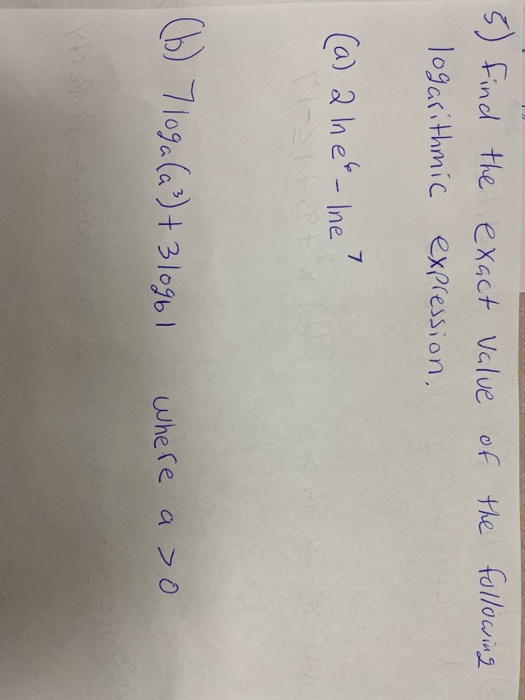 5) find the exact value of the following
logarithmic expression.
(a) 2 ln e⁶ - lne⁷
(b) 7loga(a³) + 3logb1 where a > 0